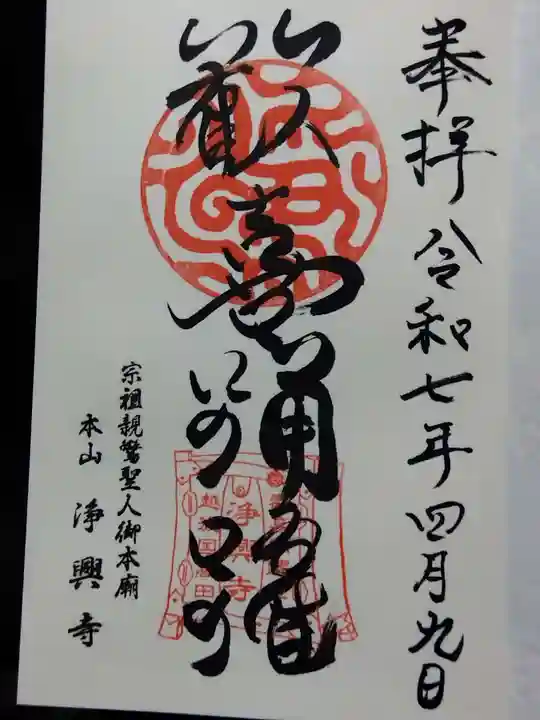 奉拝 令和七年四月九日
歓喜踊躍
宗祖親鸞聖人御本廟
本山 浄興寺
浄興寺
越後国高田